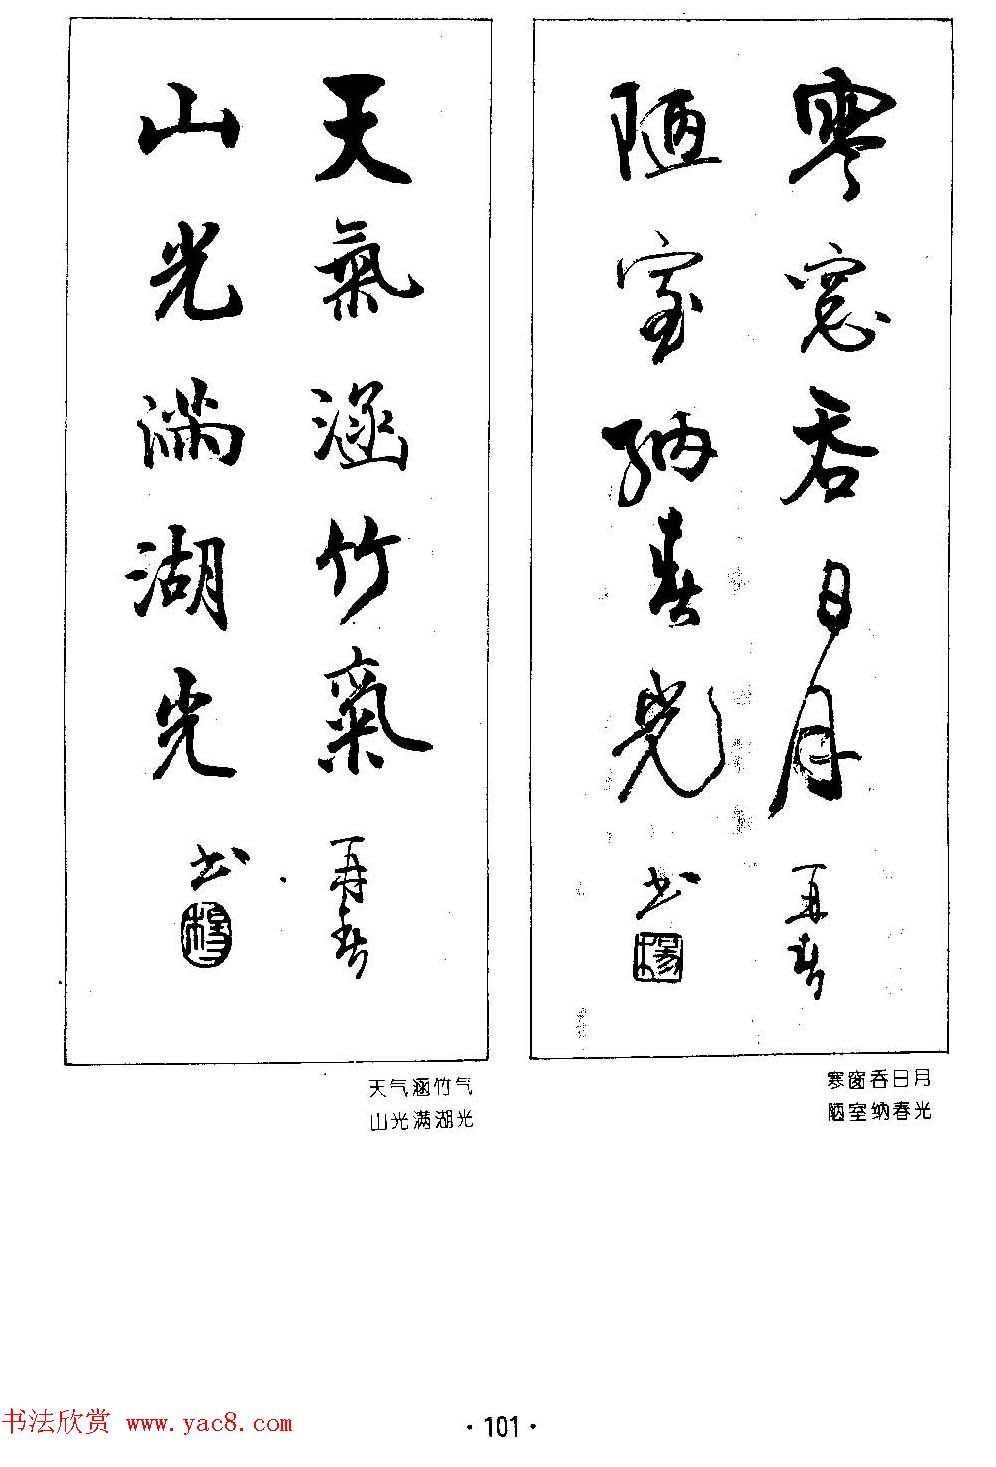 寒窓吞日月
再春
陋室納春光
书
楊
寒窗吞日月
陋室纳春光
天氣涵竹氣
再春
山光滿湖光
书
楊
天气涵竹气
山光满湖光
书法欣赏 www.yac8.com
·101·